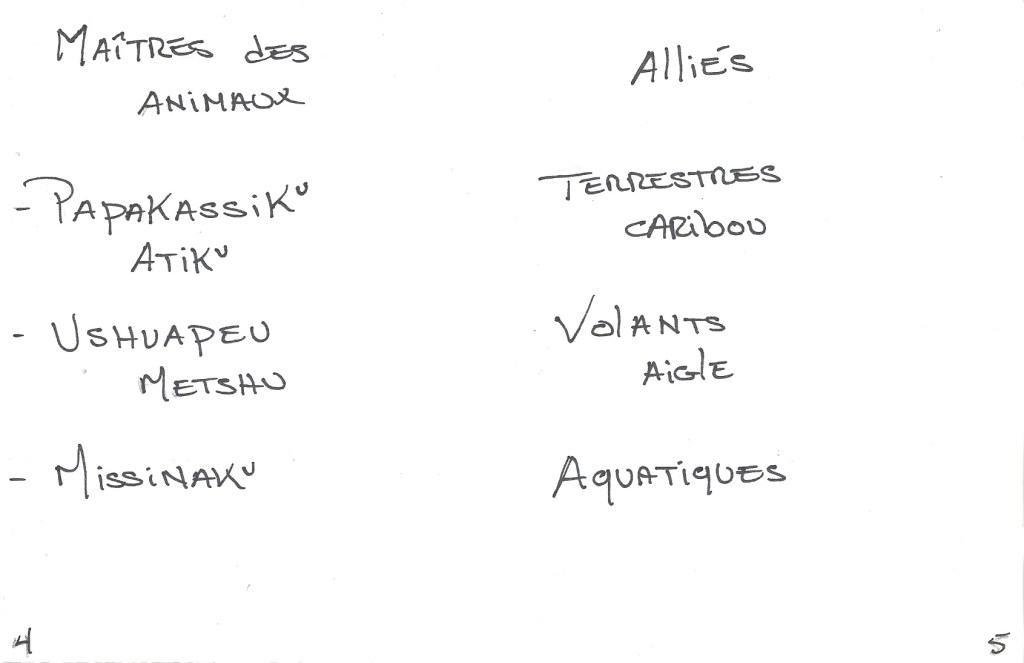 MAÎTRES dES
ANiMAUX
- PAPAKASSiKᵁ
ATiKᵁ
- USHUAPEU
METSHU
- MiSSiNAKᵁ
4
AlliÉS
TERRESTRES
CARibOU
VOlANTS
AiGlE
AqUATiqUES
5